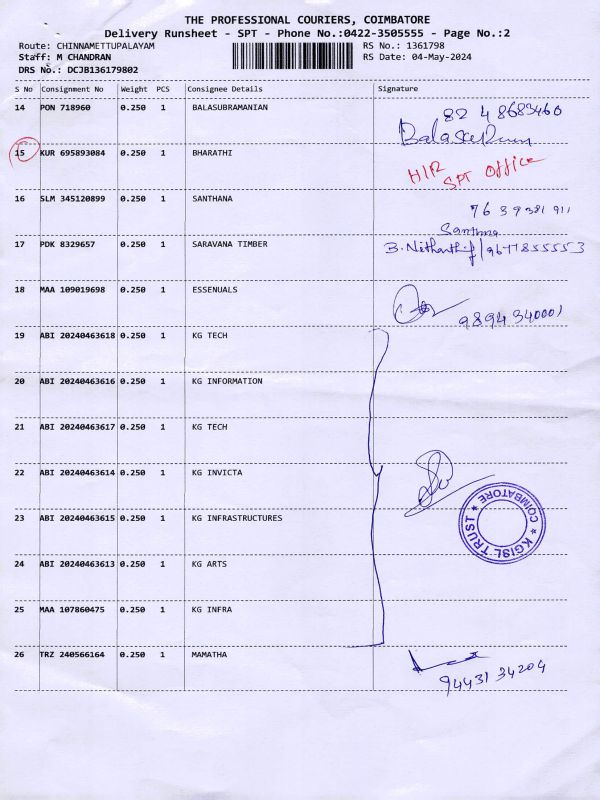 THE PROFESSIONAL COURIERS, COIMBATORE
Delivery Runsheet - SPT - Phone No.:0422-3505555 - Page No.:2
Route: CHINNAMETTUPALAYAM RS No.: 1361798
Staff: M CHANDRAN RS Date: 04-May-2024
DRS No.: DCJB136179802
S No Consignment No Weight PCS Consignee Details Signature
14 PON 718960 0.250 1 BALASUBRAMANIAN
15 KUR 695893084 0.250 1 BHARATHI SPT Office
16 SLM 345120899 0.250 1 SANTHANA
17 PDK 8329657 0.250 1 SARAVANA TIMBER 9677855553
18 MAA 109019698 0.250 1 ESSENUALS 9894340001
19 ABI 20240463618 0.250 1 KG TECH
20 ABI 20240463616 0.250 1 KG INFORMATION
21 ABI 20240463617 0.250 1 KG TECH
22 ABI 20240463614 0.250 1 KG INVICTA
23 ABI 20240463615 0.250 1 KG INFRASTRUCTURES
KGISL TRUST COIMBATORE
24 ABI 20240463613 0.250 1 KG ARTS
25 MAA 107860475 0.250 1 KG INFRA
26 TRZ 240566164 0.250 1 MAMATHA 94431 34204